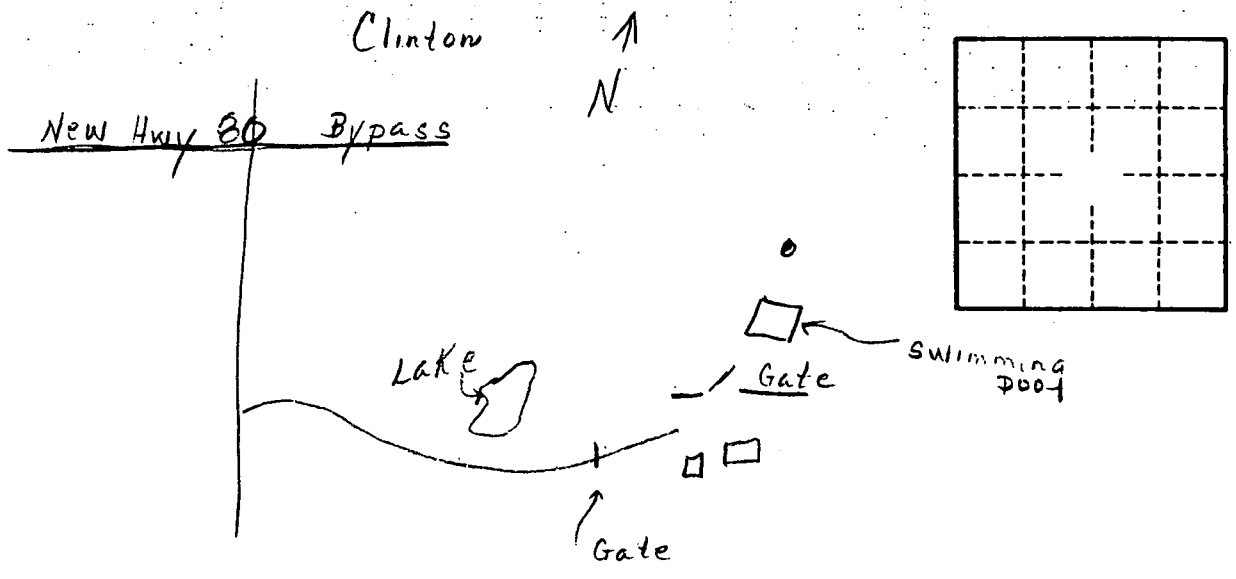 Clinton
N
New Hwy 80 Bypass
Lake
Gate
Swimming
Pool
Gate